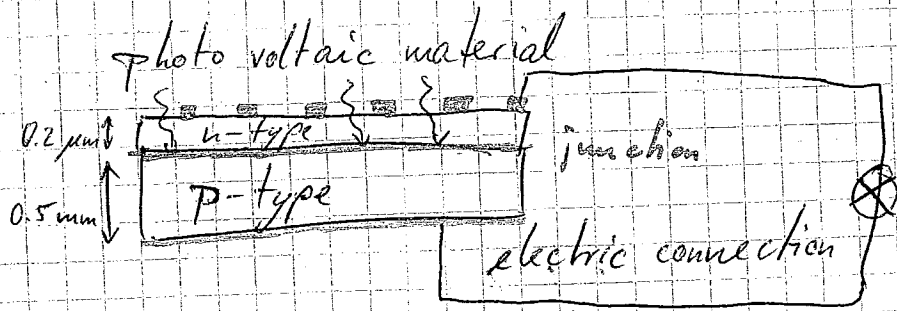 photo voltaic material
0.2 μm
n-type
junction
0.5 mm
p-type
electric connection